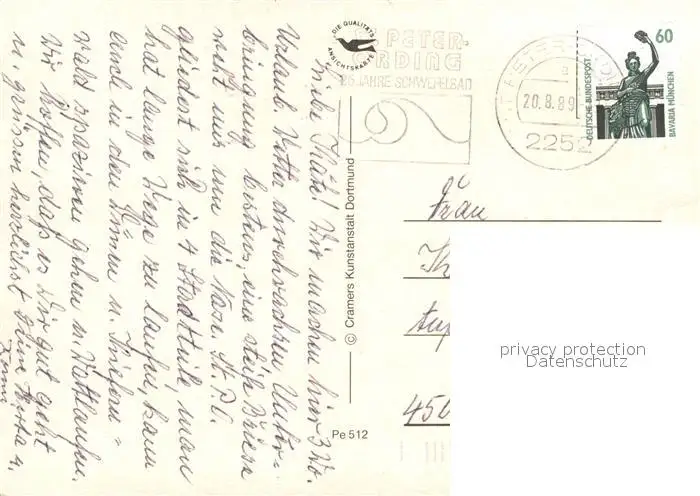 Liebe Thea! Wir machen hier 3 Wo.
Urlaub. Wetter durchwachsen, Unter-
bringung bestens, eine steife Briese
weht uns um die Nase. St. P. O.
gliedert sich in 4 Stadtteile, man
hat lange Wege zu laufen, kann
auch in den Dünen u. Kiefern =
wald spazieren gehen u. Wattlaufen.
Wir hoffen, daß es Dir gut geht
u. grüßen herzlichst Deine Herta u.
DIE QUALITÄTS
ANSICHTSKARTE
ST PETER-
ORDING
25 JAHRE SCHWEFELBAD
ST PETER-ORDING
a
20.8.89
2252
60
DEUTSCHE BUNDESPOST
BAVARIA MÜNCHEN
© Cramers Kunstanstalt Dortmund
Pe 512
Frau
450
privacy protection
Datenschutz